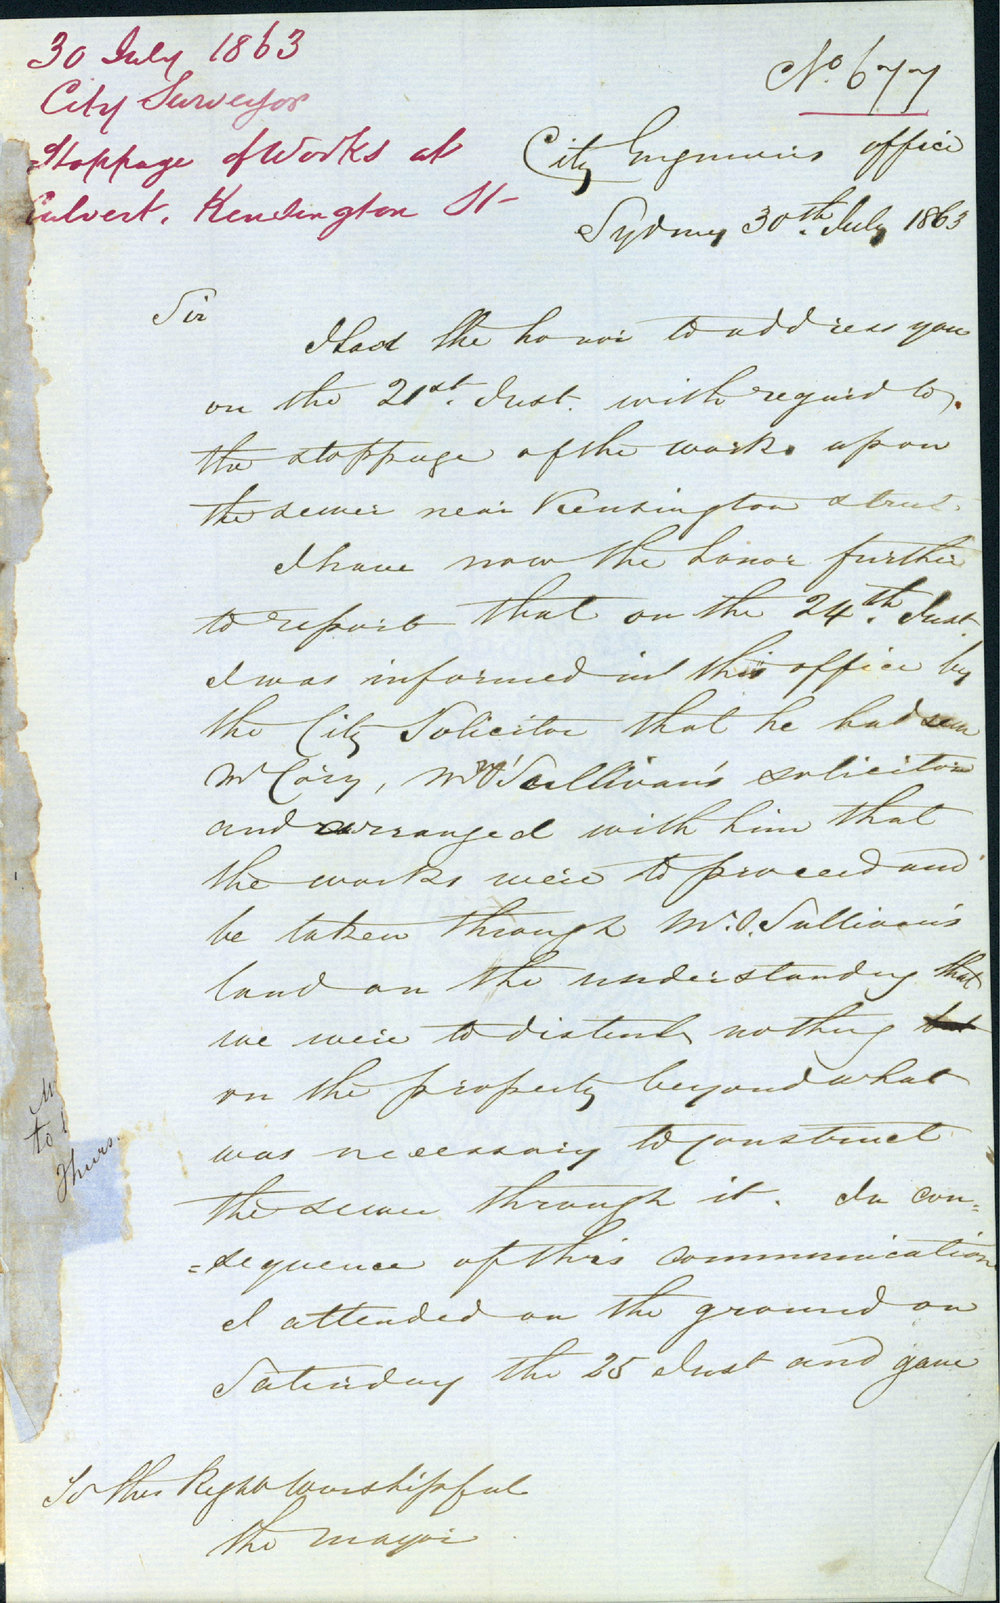 30 July 1863
City Surveyor
Stoppage of Works at
Culvert, Kensington St
No. 677
City Engineers office
Sydney 30th. July 1863
Sir
I had the honor to address you
on the 21st. Inst. with regard to
the stoppage of the works upon
the sewer near Kensington street.
I have now the honor further
to report that on the 24th. Inst.
I was informed in this office by
the City Solicitor that he had seen
Mr Cory, Mr O'Sullivan's solicitor
and arranged with him that
the works were to proceed and
be taken through Mr. O. Sullivan's
land on the understanding that
we were to disturb nothing
on the property beyond what
was necessary to construct
the sewer through it. In con=
=sequence of this communication
I attended on the ground on
Saturday the 25 Inst and gave
To the Right Worshipful
the Mayor
to
Thurs.